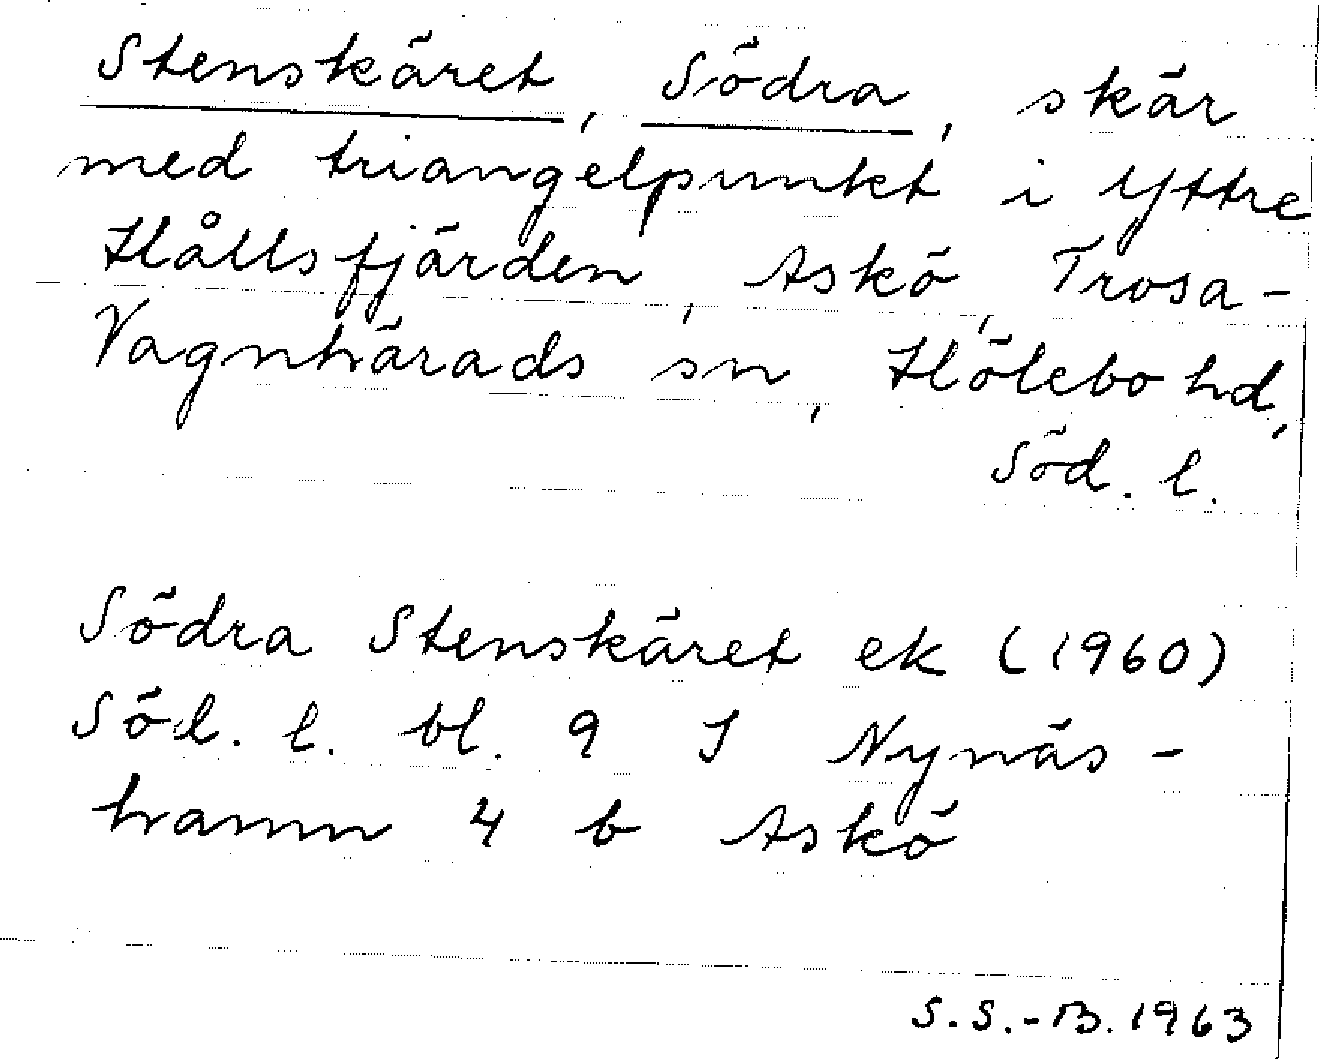 Stenskäret, Södra, skär
med triangelpunkt i Yttre
Hållsfjärden, Askö, Trosa-
Vagnhärads sn, Hölebo hd,
Söd. l.
Södra Stenskäret ek (1960)
Söd. l. bl. 9 J Nynäs-
hamn 4 b Askö
S.S.-B. 1963